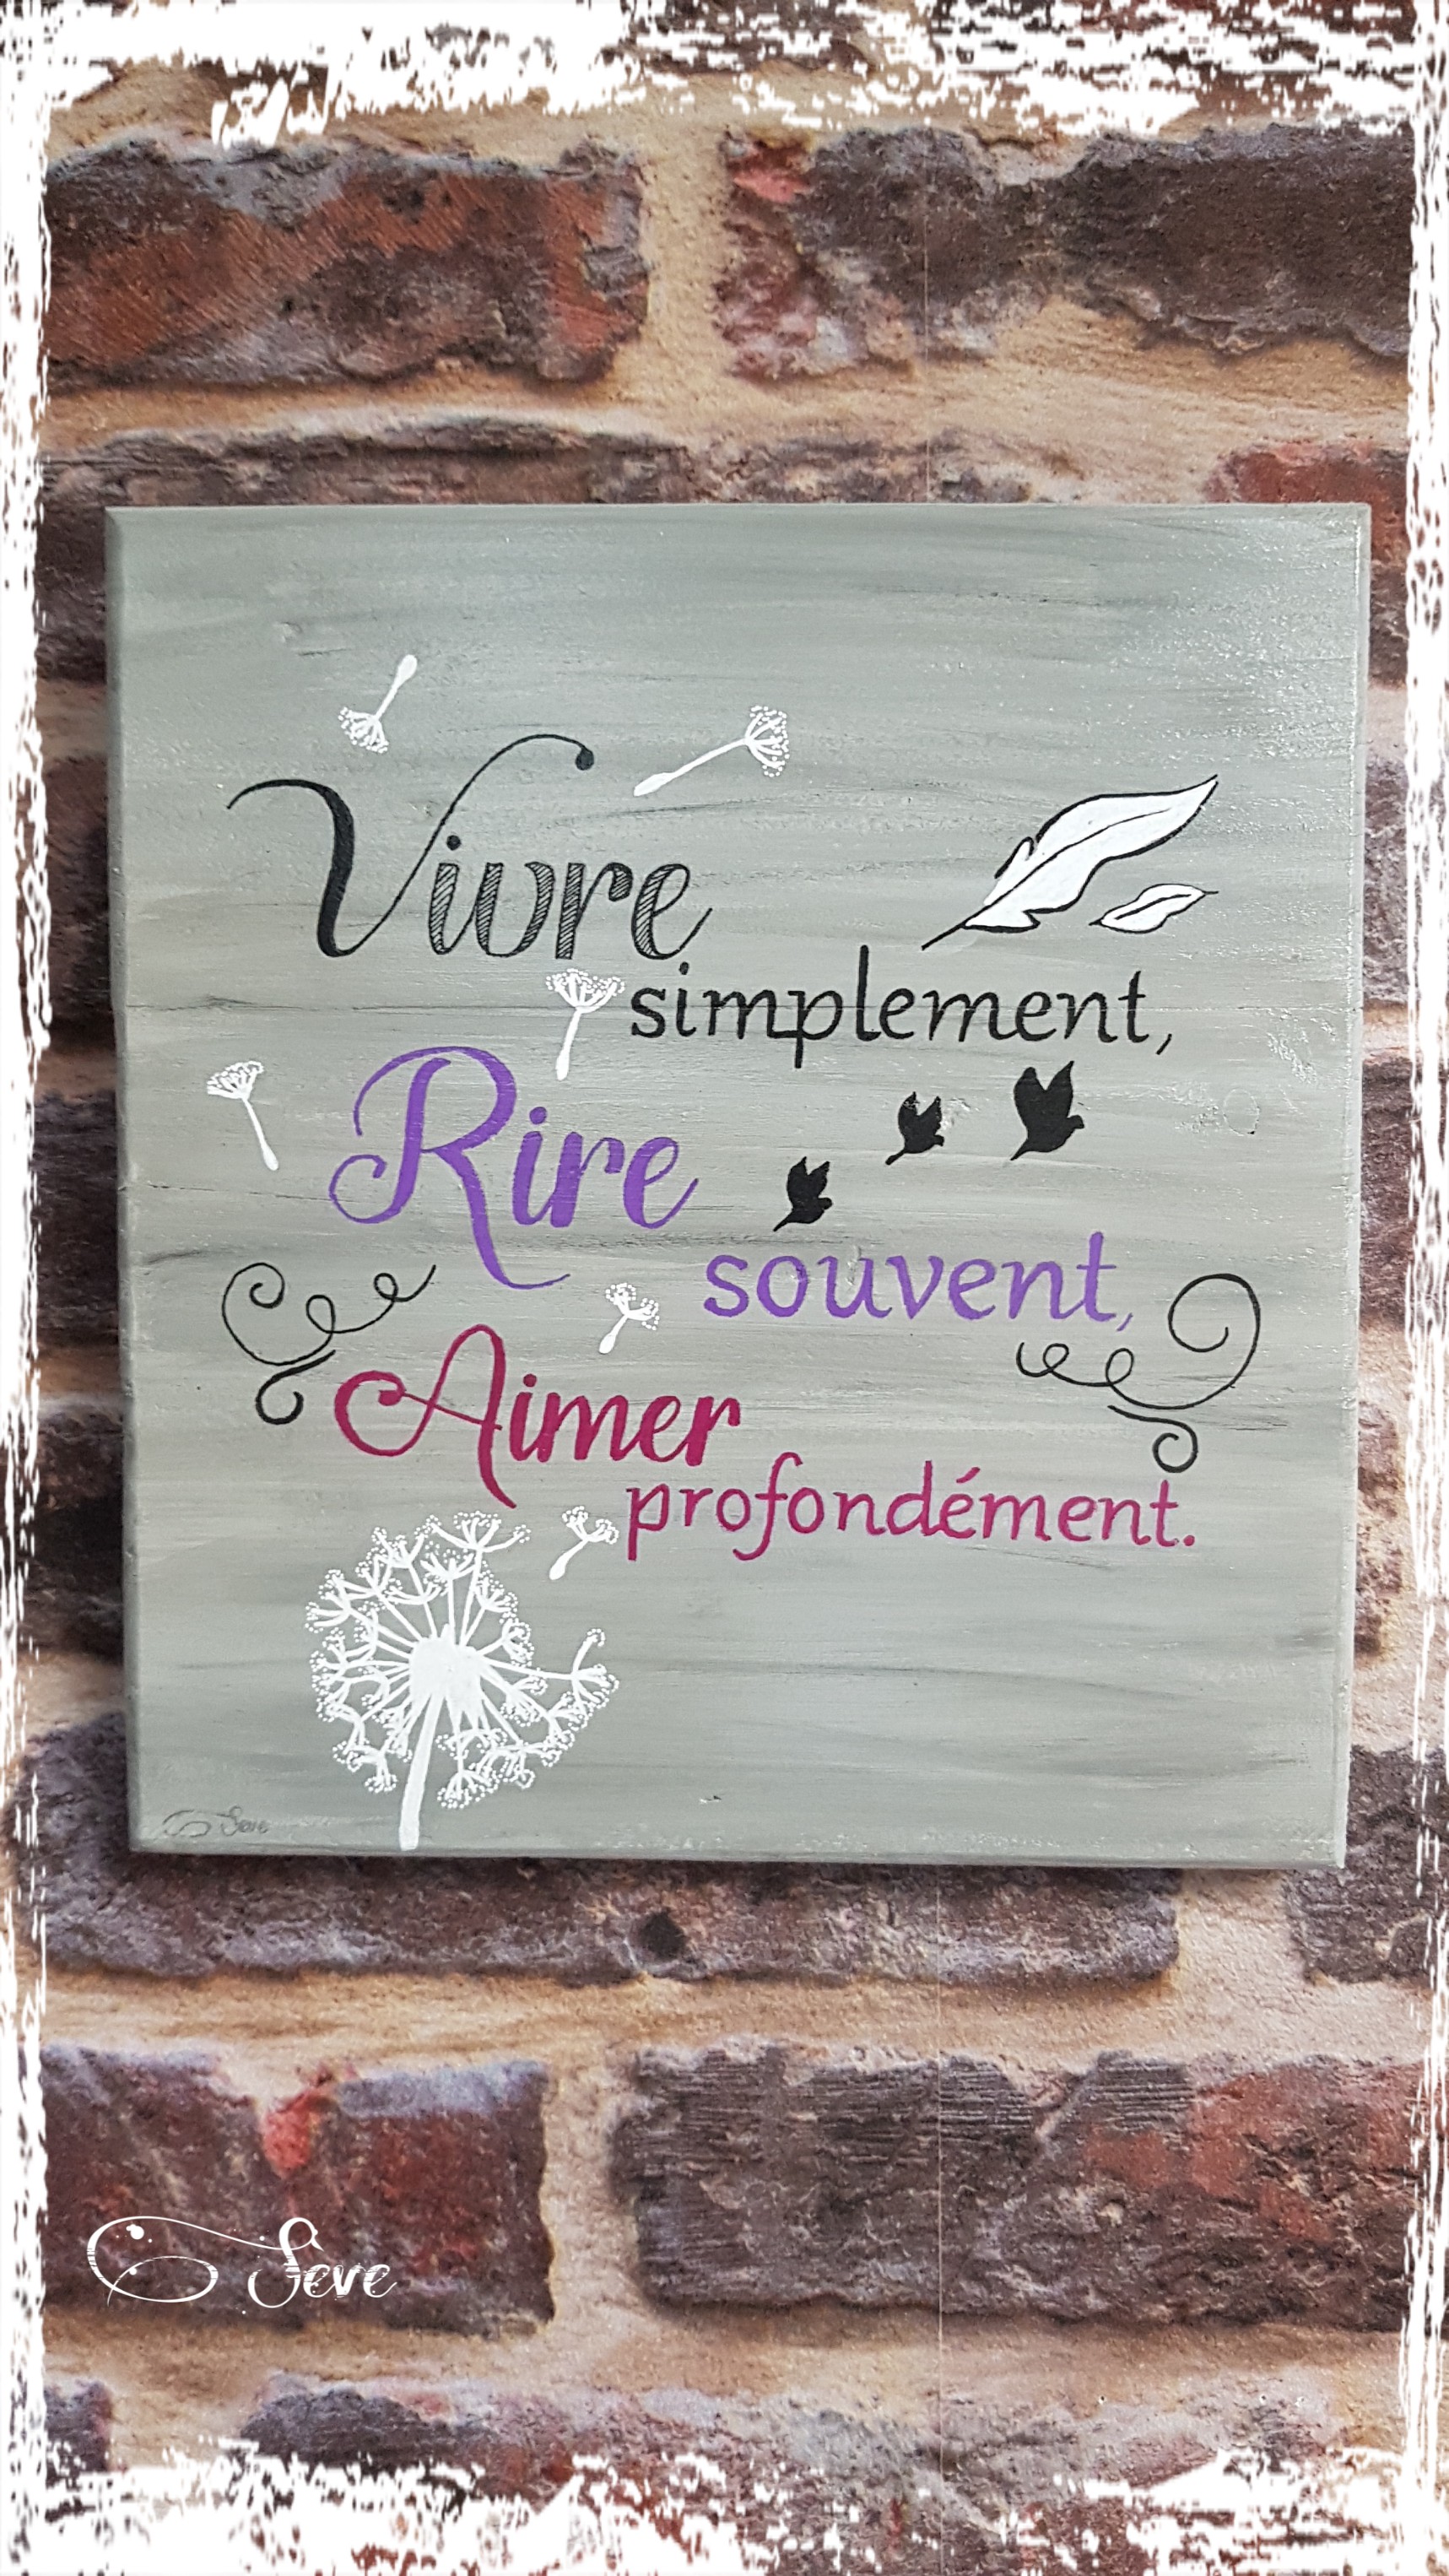 Vivre
simplement,
Rire
souvent,
Aimer
profondément.
Seve
Seve